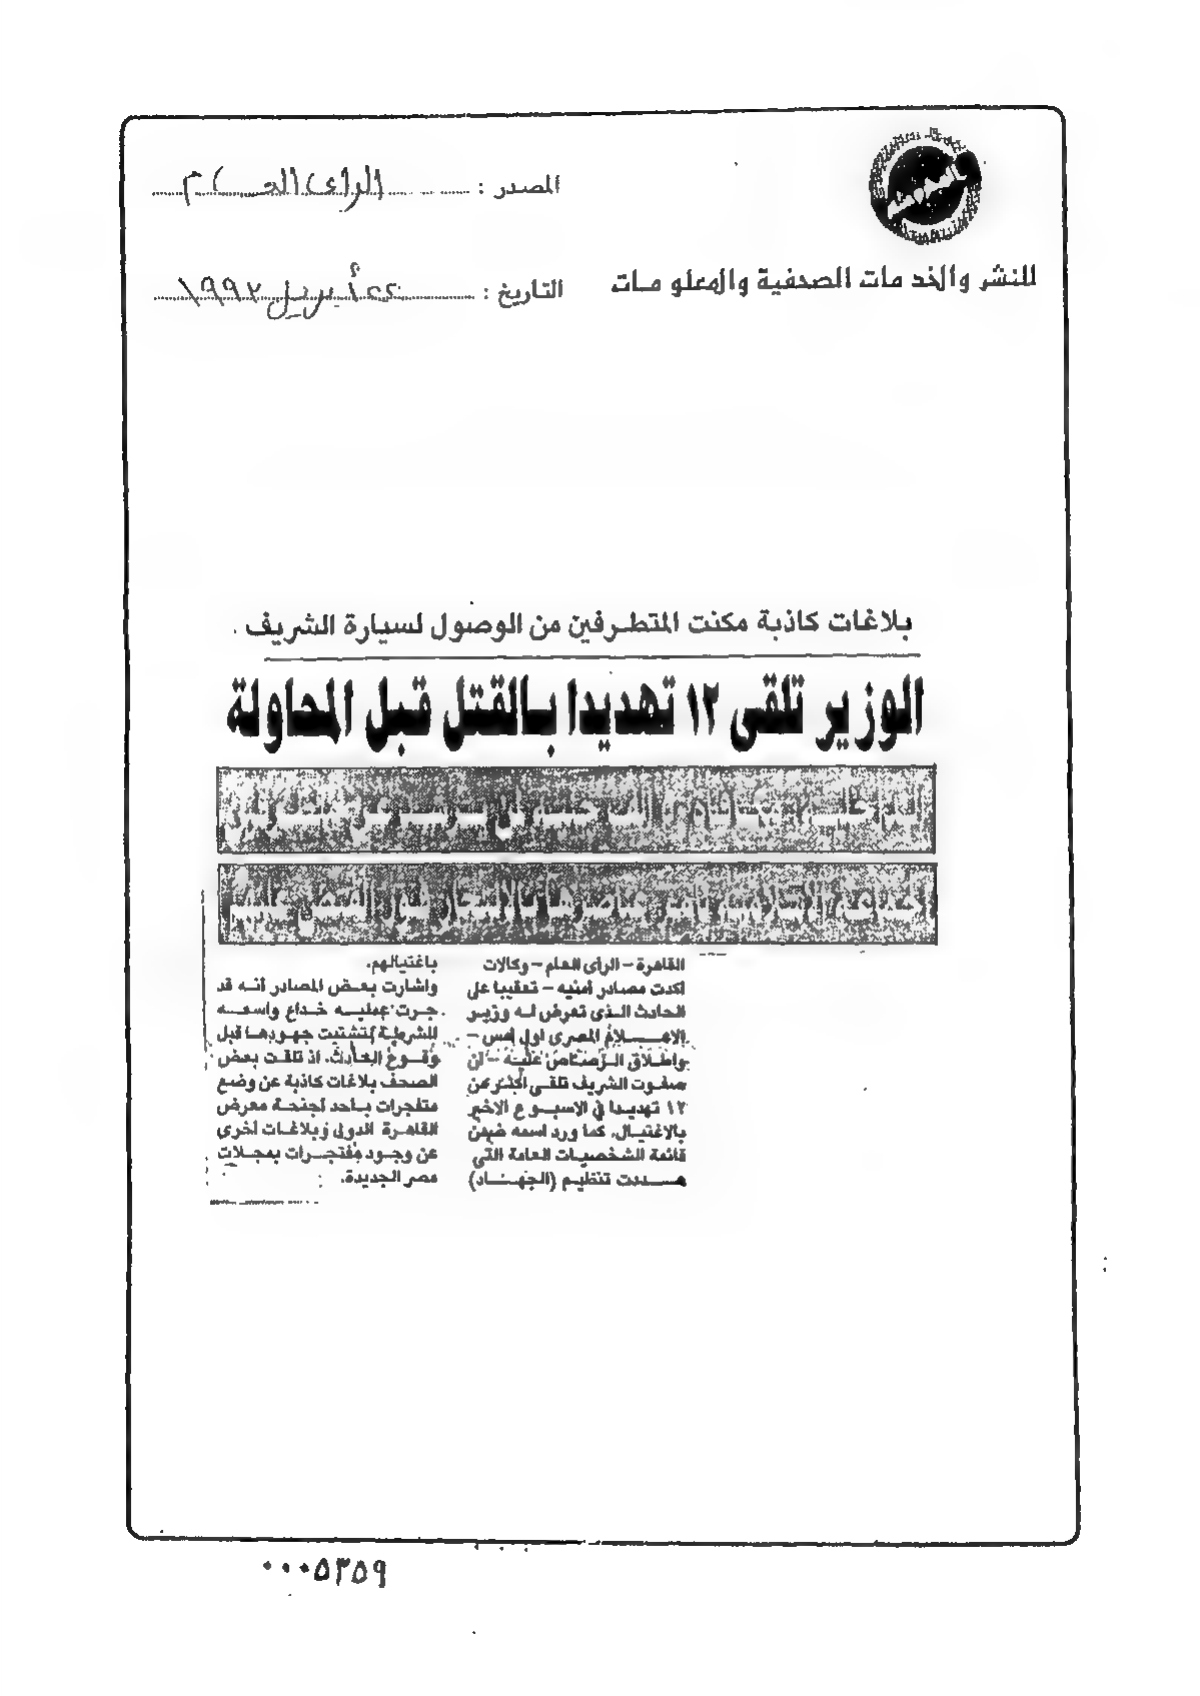 المصدر : الرأي العام
للنشر والخدمات الصحفية والمعلومات
التاريخ : ٢٢ أبريل ١٩٩٣
بلاغات كاذبة مكنت المتطرفين من الوصول لسيارة الشريف .
الوزير تلقى ١٢ تهديدا بالقتل قبل المحاولة
القاهرة – الرأى العام – وكالات
اكدت مصادر أمنيه – تعقيبا على
الحادث الذى تعرض له وزير
الاعلام المصرى اول امس –
واطلاق الرصاص عليه – ان
صفوت الشريف تلقى اكثر من
١٢ تهديدا في الاسبوع الاخير
بالاغتيال، كما ورد اسمه ضمن
قائمة الشخصيات العامة التي
هددت تنظيم (الجهاد)
باغتيالهم.
واشارت بعض المصادر أنه قد
جرت عمليه خداع واسعه
للشرطة لتشتيت جهودها قبل
وقوع الحادث، اذ تلقت بعض
الصحف بلاغات كاذبة عن وضع
متفجرات باحد اجنحة معرض
القاهرة الدولى وبلاغات أخرى
عن وجود مفتجرات بمجلات
مصر الجديدة.
٠٠٠٥٣٥٩